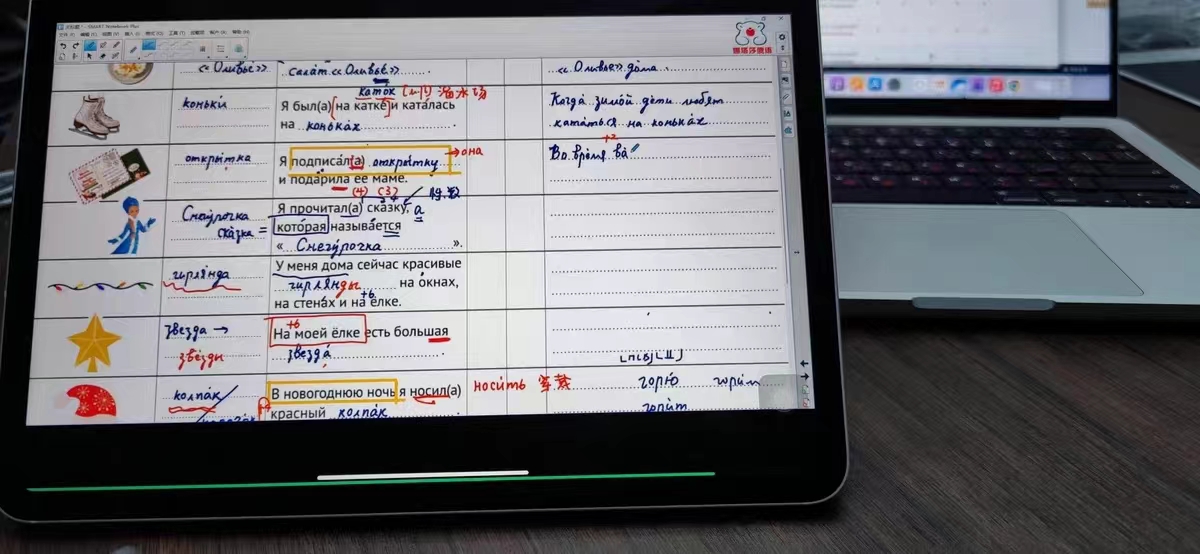 SMART Notebook Plus
«Оливье»
салат «Оливье»
«Оливье» дома
каток
коньки́
Я был(а) на катке и каталась
на конька́х
Когда зимой дети любят
кататься на коньках
откры́тка
Я подписал(а) откры́тку
она
и подарила её маме.
Во время
(4) (3)
Снегу́рочка
ска́зка =
Я прочитал(а) сказку, а
которая называется
« Снегу́рочка ».
гирля́нда
У меня дома сейчас красивые
гирля́нды на окнах,
+6
на стенах и на ёлке.
звезда →
звёзды
+6
На моей ёлке есть большая
звезда́
колпа́к
В новогоднюю ночь я носил(а)
носи́ть
горю́
гори́т
красный колпа́к